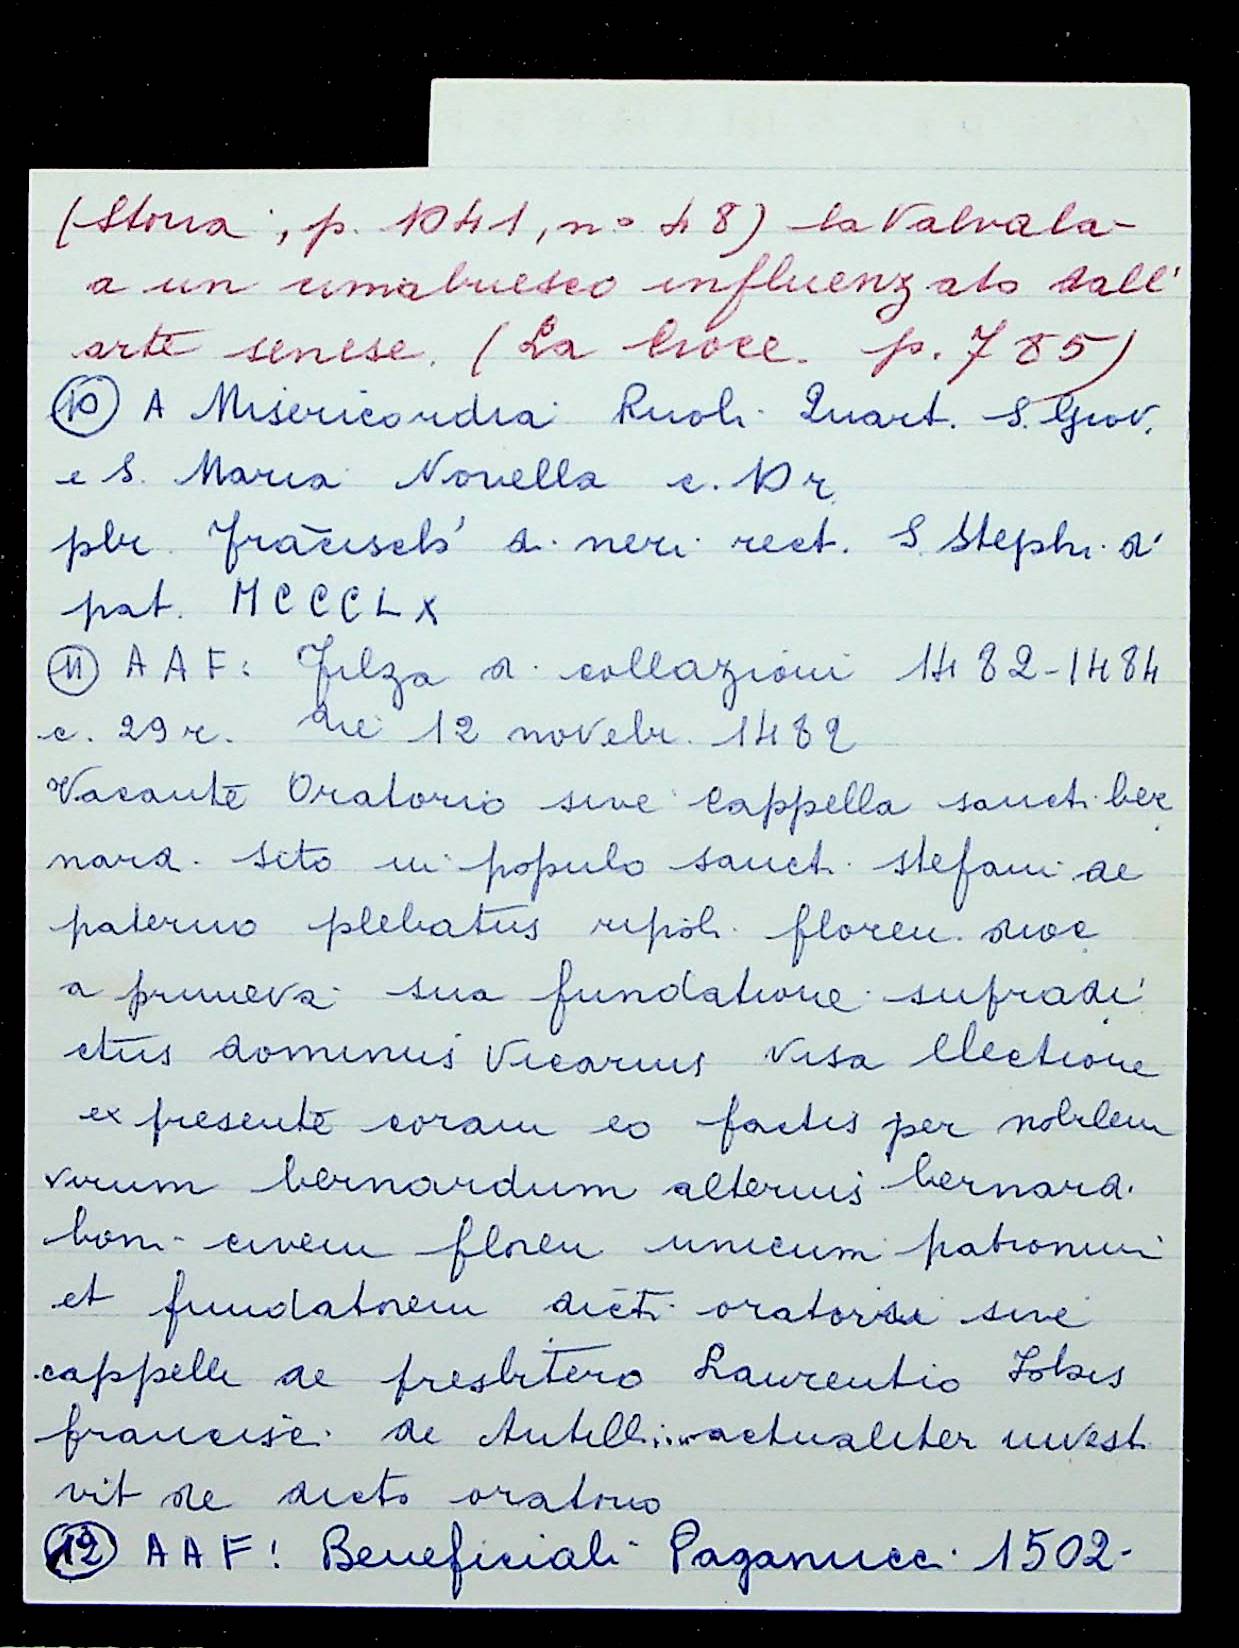 (Storia, p. 1041, n° 48) la Valvala-
a un cimabuesco influenzato dall'
arte senese. (La Croce. p. 785)
⑩ A Misericordia Ruoli Quart. S. Giov.
e S. Maria Novella c. 10 r.
pbr. Frācisch' d. neri rect. S. Steph. d'
pat. MCCCLX
⑪ AAF: Filza di collazioni 1482-1484
c. 29 r. Die 12 novebr. 1482
Vacantē Oratorio sive Cappella sancti ber
nard. sito in populo sancti stefani de
paterno plebatus ripoli floren. dioc
a primeva sua fundatione supradi
ctus dominus Vicarius Visa Electione
ex presentē coram eo factis per nobilem
virum bernardum alterius bernard.
boni civem floren unicum patronum
et fundatorem dicti oratorii sive
cappelle de presbitero Laurentio Johis
francisci de Antilli.... actualiter invest
vit de dicto oratorio
⑫ AAF: Beneficiali Paganucci 1502-